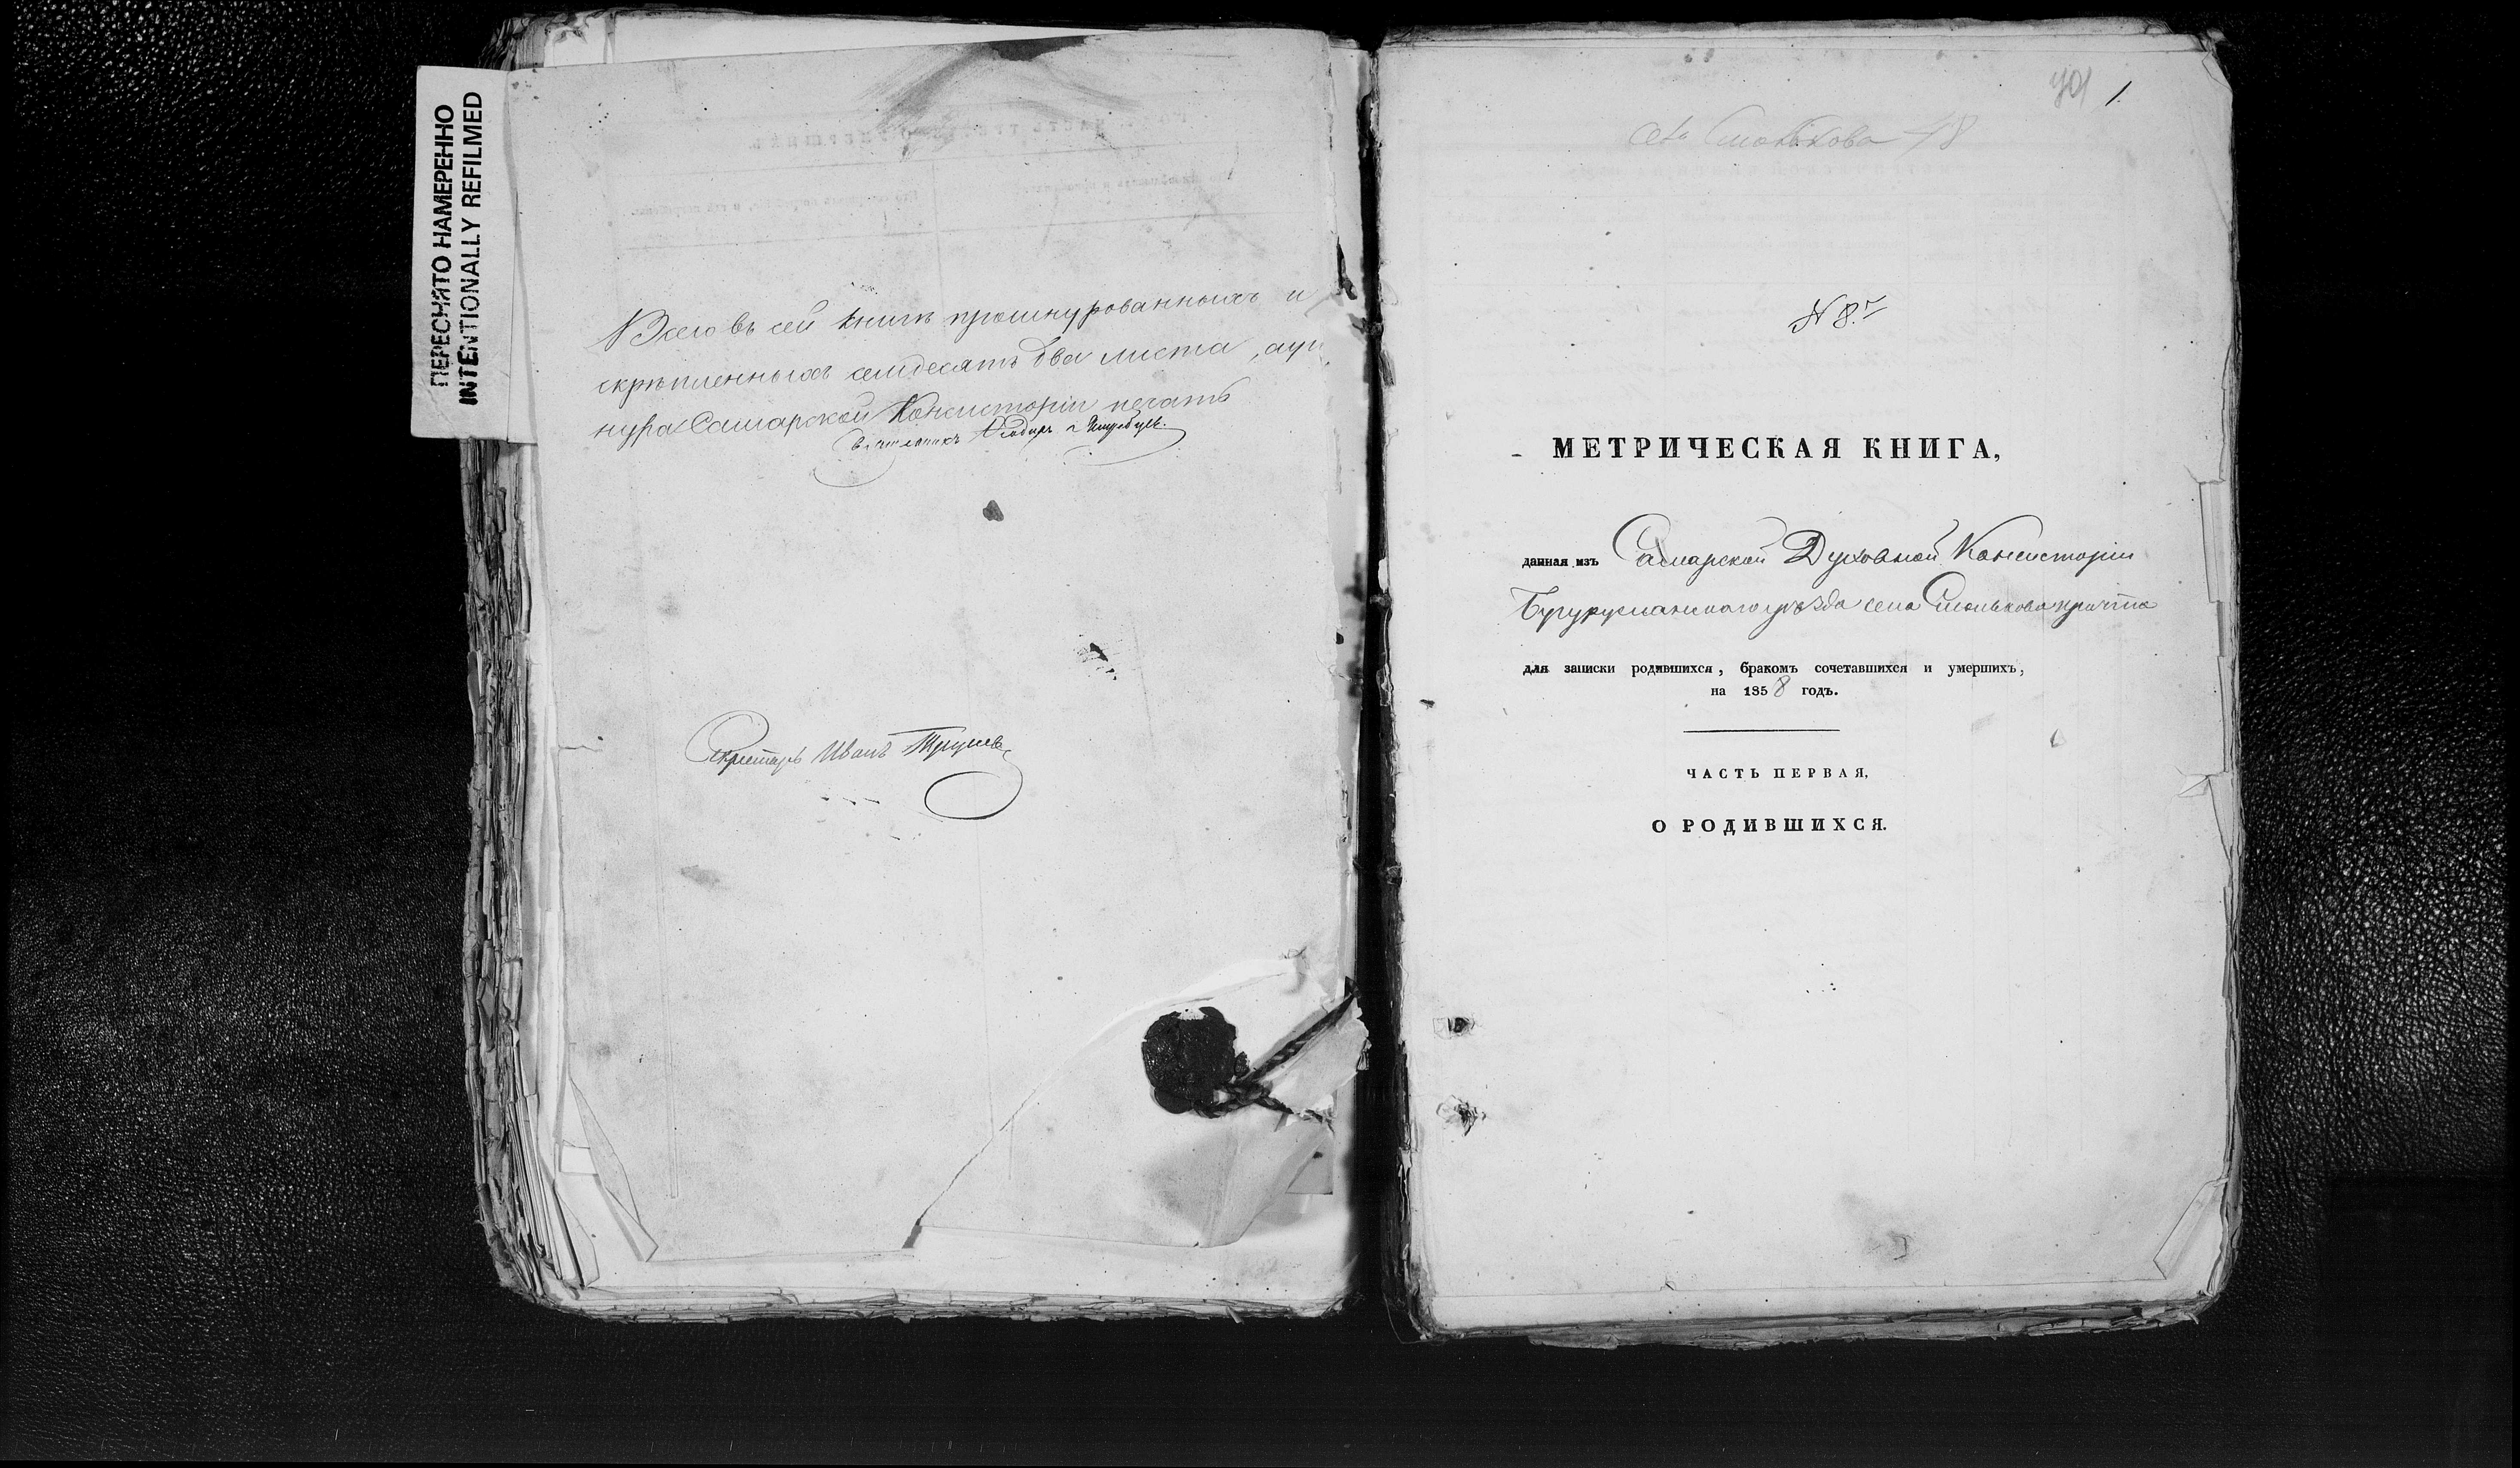 ПЕРЕСНЯТО НАМЕРЕННО
INTENTIONALLY REFILMED
Всего въ сей книгѣ прошнурованныхъ и
скрѣпленныхъ семдесятъ два листа,
Самарской Консисторіи печать
Секретарь Иванъ
1.
село Смолькова
N 8.
МЕТРИЧЕСКАЯ КНИГА,
данная изъ Самарской Духовной Консисторіи
Бугурусланскаго уѣзда села Смолькова причта
для записки родившихся, бракомъ сочетавшихся и умершихъ,
на 1858 годъ.
ЧАСТЬ ПЕРВАЯ,
О РОДИВШИХСЯ.